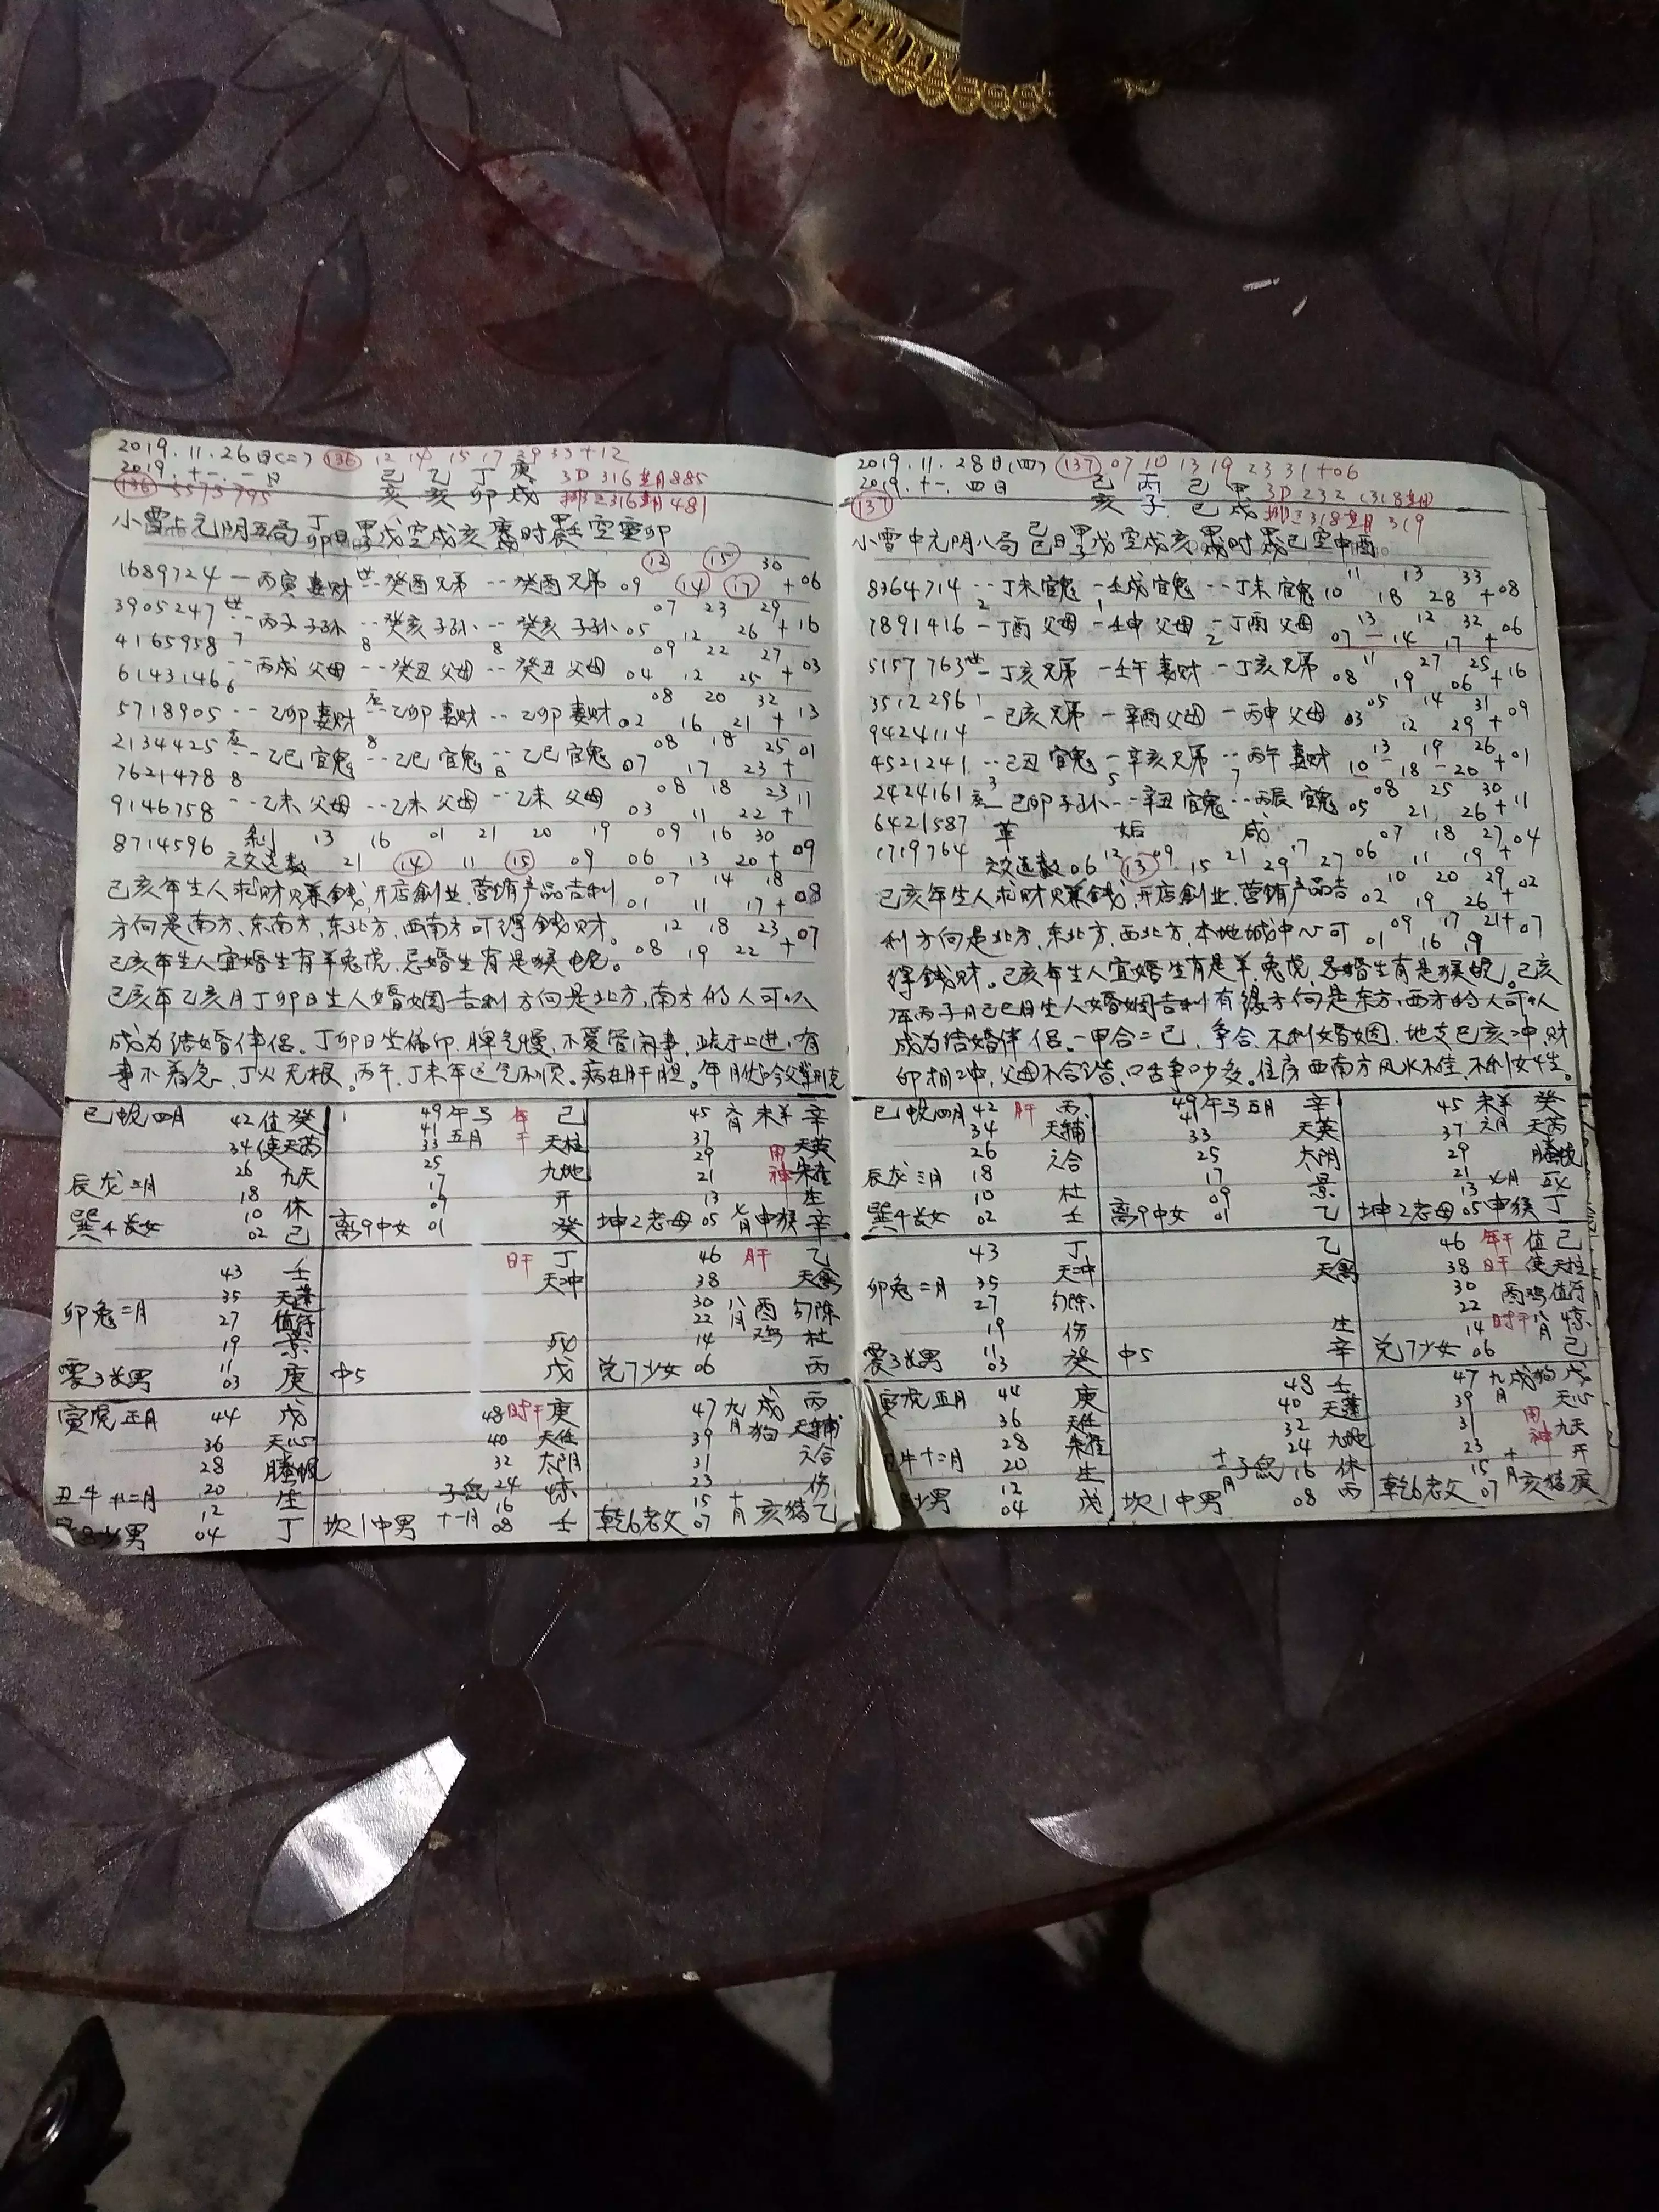 2019.11.26日(二) 136 12 14 15 17 29 33+12
2019.十一.一日 己 乙 丁 庚 3D 316 885
136 5575795 亥 亥 卯 戌 排三316 481
小雪上元阴五局 丁卯日甲子戌空戌亥
1689724 一丙寅妻财 世--癸酉兄弟 --癸酉兄弟 09 12 14 15 17 30 +06
3905247 世--丙子子孙 --癸亥子孙 --癸亥子孙 05 07 12 23 26 29 +16
4165958 7 8 8
6143146 --丙戌父母 --癸丑父母 --癸丑父母 04 09 12 22 25 27 +03
5718905 --乙卯妻财 应--乙卯妻财 --乙卯妻财 02 08 16 20 21 32 +13
2134425 应--乙巳官鬼 --乙巳官鬼 --乙巳官鬼 07 08 17 18 23 25 +01
7621478 8
9146758 --乙未父母 --乙未父母 --乙未父母 03 08 11 18 22 23 +11
8714596 剥 13 16 01 21 20 19 09 16 30
21 14 11 15 09 06 13 20+09
己亥年生人求财赚錢,开店創业.营销产品吉利 01 07 11 14 17 18 +08
方向是南方、东南方、东北方、西南方可得錢财。 12 18 23 +07
己亥年生人宜婚生有羊兔虎,忌婚生有是猴蛇。 08 19 22
己亥年乙亥月丁卯日生人婚姻吉利方向是北方,南方的人可以
成为结婚伴侣。丁卯日坐偏印.脾气慢,不爱管闲事,疏于上进,有
事不着急,丁火无根。丙午、丁未年运气不顺。病在肝胆。
巳蛇四月 42 值 癸 49 午马 年 己 45 未羊 辛
34 使 天芮 41 五月 干 天柱 37 天英
26 九天 33 九地 29 用 朱雀
辰龙三月 18 休 25 开 21 神 生
巽4长女 10 02 己 17 09 离9中女 01 癸 13 坤2老母 05 七月申猴 辛
43 壬 日干 丁 46 月干 乙
35 天蓬 天冲 38 天禽
卯兔二月 27 值符 30 八月 酉鸡 勾陈
19 景 死 22 14 杜
震3长男 11 03 庚 中5 戊 兑7少女 06 丙
寅虎正月 44 戊 48 时干 庚 47 九月 戌狗 丙
36 天心 40 天任 39 天辅
28 腾蛇 32 太阴 31 六合
丑牛十二月 20 生 子鼠 24 惊 23 伤
12 04 丁 坎1中男 十一月 16 08 壬 乾6老父 15 07 十月 亥猪 乙
2019.11.28日(四) 137 07 10 13 19 23 31+06
2019.十一.四日 己 丙 己 甲 3D 232
137 亥 子 巳 戌 排三318 319
小雪中元阴八局 己巳日甲子戌空戌亥
8364714 --丁未官鬼 一壬戌官鬼 --丁未官鬼 10 11 18 13 28 33 +08
7891416 一丁酉父母 一壬申父母 一丁酉父母 07 13 14 12 17 32 +06
5157763 世一丁亥兄弟 一壬午妻财 一丁亥兄弟 08 11 19 27 06 25 +16
3512296
9424114 一己亥兄弟 一辛酉父母 一丙申父母 03 05 12 14 29 31 +09
4521241 --己丑官鬼 一辛亥兄弟 --丙午妻财 10 13 18 19 20 26 +01
2424161 一己卯子孙 --辛丑官鬼 --丙辰官鬼 05 08 21 25 26 30 +11
6421587 革 姤 咸 07 18 27
1719764 06 12 13 09 15 21 29 17 27 06 11 19 +04
己亥年生人求财赚錢,开店創业.营销产品吉 02 10 19 20 26 29 +02
利方向是北方,东北方,西北方,本地城中心可 01 09 16 17 19 21+07
得錢财。己亥年生人宜婚生有是羊、兔虎,忌婚生有是猴蛇。己亥
年丙子月己巳日生人婚姻吉利有缘方向是东方,西方的人可以
成为结婚伴侣。一甲合二己,争合,不利婚姻.地支巳亥冲,财
印相冲,父母不合谐,口舌争吵多。住房西南方风水不佳,不利女性。
巳蛇四月 42 月干 丙 49 午马五月 辛 45 未羊 癸
34 天辅 41 33 天英 37 六月 天芮
26 六合 25 太阴 29 腾蛇
辰龙三月 18 17 景 21 七月 死
10 杜 09 13
巽4长女 02 壬 离9中女 01 乙 坤2老母 05 申猴 丁
43 丁 乙 46 年干 值 己
35 天冲 天禽 38 日干 使 天柱
卯兔二月 27 勾陈 30 酉鸡 值符
19 伤 生 22 14 时干 八月 惊
震3长男 11 03 癸 中5 辛 兑7少女 06 己
寅虎正月 44 庚 48 壬 47 九月 戌狗 戊
36 天任 40 天蓬 39 天心
28 朱雀 32 九地 31 用神 九天
丑牛十二月 20 生 24 十一月 子鼠 16 休 23 开
少男 12 04 戊 坎1中男 08 丙 乾6老父 15 07 十月 亥猪 庚